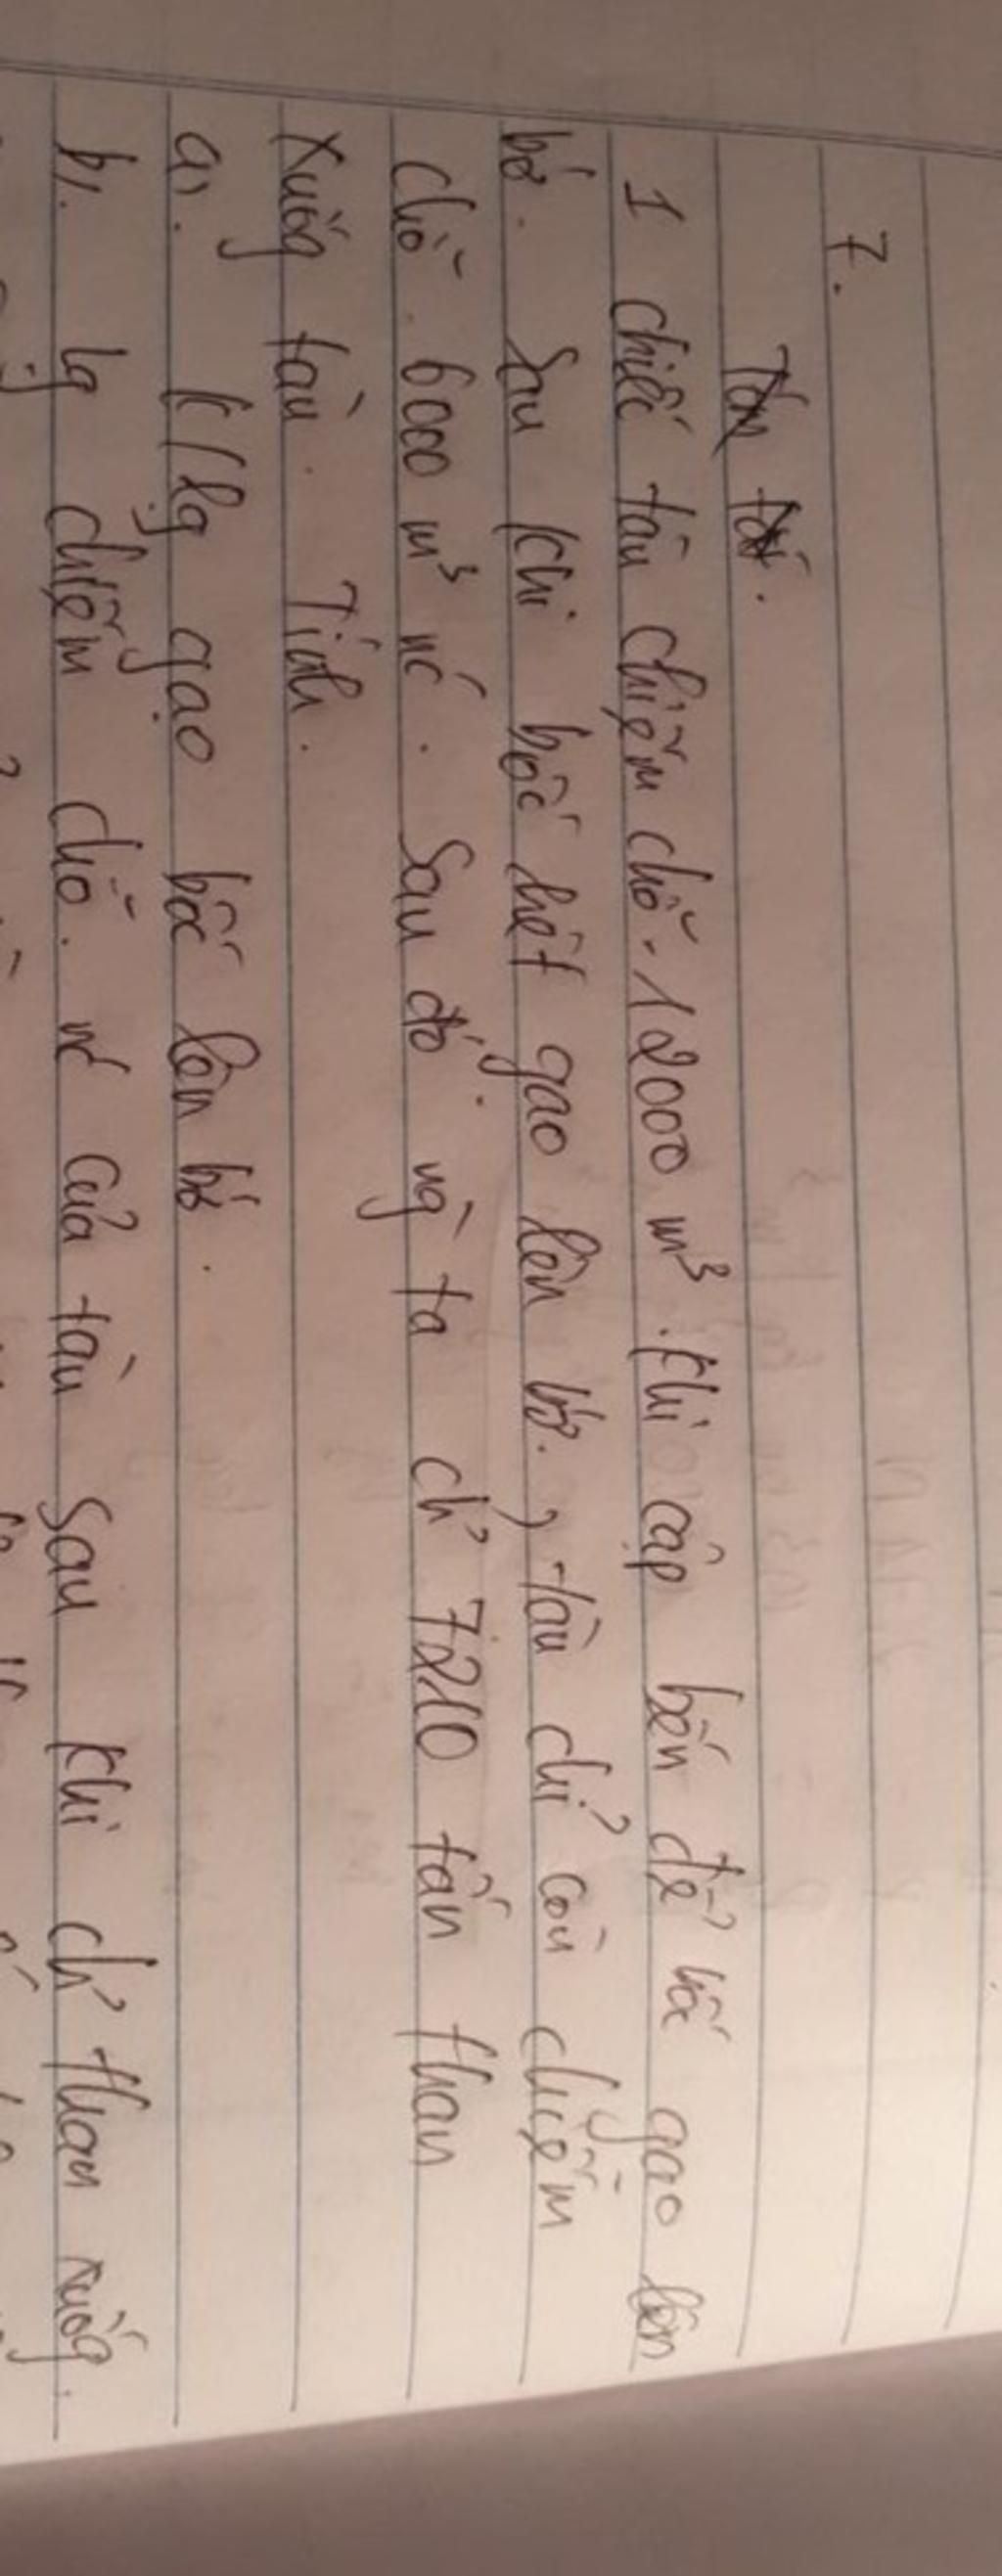 7.
Tóm tắt.
1 chiếc tàu chiếm chỗ 12000 m³. Khi cập bến để bốc gạo lên
bờ. Sau khi bốc hết gạo lên bờ, tàu chỉ còn chiếm
chỗ 6000 m³ nc. Sau đó ng ta ch 7210 tấn than
xuống tàu. Tính.
a). klg gạo bốc lên bờ.
b). lg chiếm chỗ nc của tàu sau khi ch than xuống.